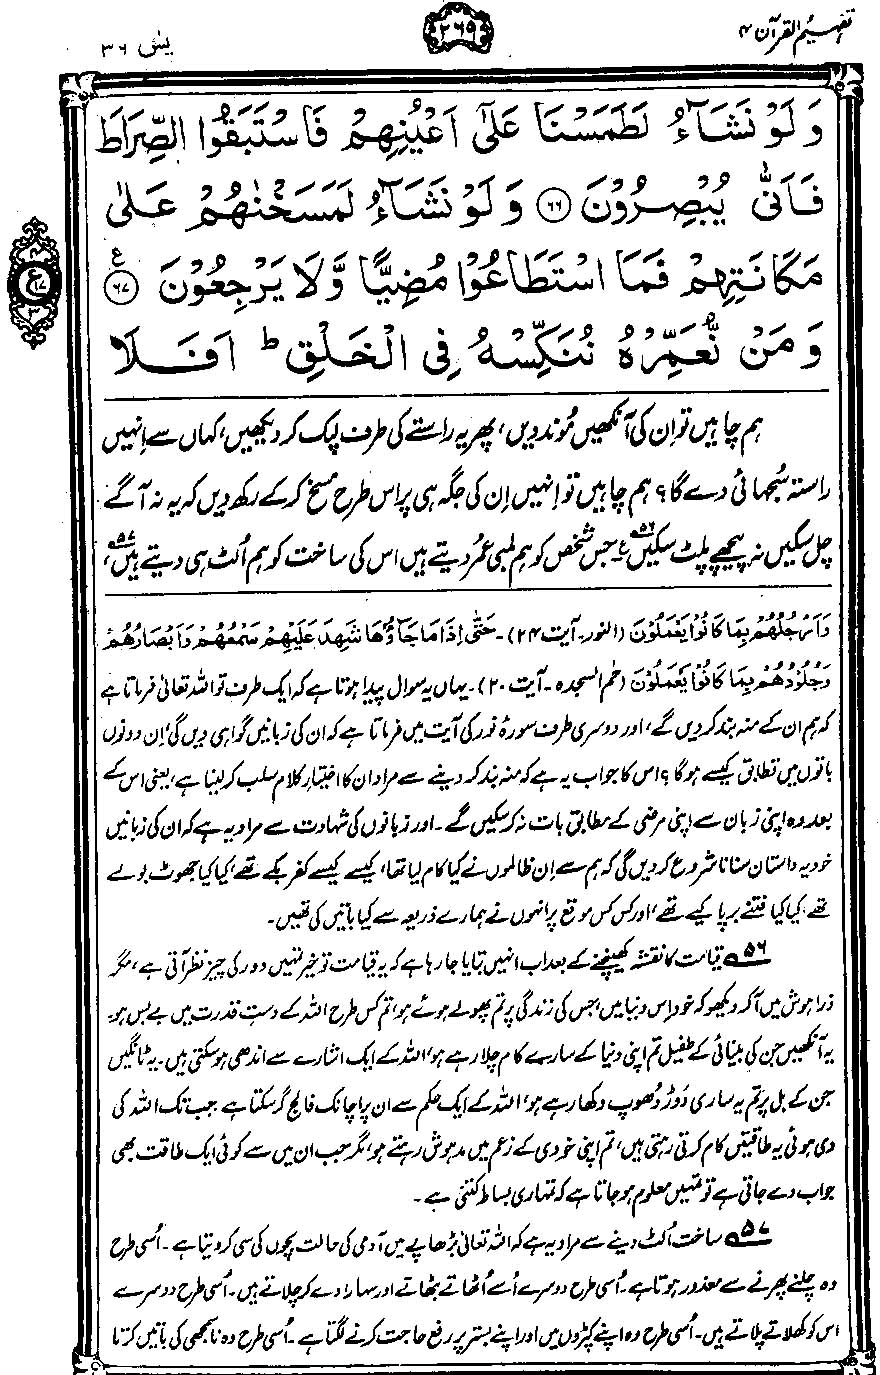 تفہیم القرآن ۴
۲۶۹
یٰس ۳۶
وَلَوْ نَشَآءُ لَطَمَسْنَا عَلٰٓی اَعْیُنِهِمْ فَاسْتَبَقُوا الصِّرَاطَ
فَاَنّٰی یُبْصِرُوْنَ ﴿۶۶﴾ وَلَوْ نَشَآءُ لَمَسَخْنٰهُمْ عَلٰی
مَکَانَتِهِمْ فَمَا اسْتَطَاعُوْا مُضِیًّا وَّلَا یَرْجِعُوْنَ ﴿۶۷﴾ ع
وَمَنْ نُّعَمِّرْهُ نُنَکِّسْهُ فِی الْخَلْقِ ؕ اَفَلَا
ہم چاہیں تو اِن کی آنکھیں مُوند دیں، پھر یہ راستے کی طرف لپک کر دیکھیں، کہاں سے اِنہیں
راستہ سُجھائی دے گا؟ ہم چاہیں تو اِنہیں اِن کی جگہ ہی پر اس طرح مسخ کر کے رکھ دیں کہ یہ نہ آگے
چل سکیں نہ پیچھے پلٹ سکیں۵۶ ع جس شخص کو ہم لمبی عمر دیتے ہیں اس کی ساخت کو ہم اُلٹ ہی دیتے ہیں۵۷،
وَاَرْجُلُهُمْ بِمَا کَانُوْا یَعْمَلُوْنَ (النور۔ آیت ۲۴)۔ حَتّٰی اِذَا مَا جَآؤُهَا شَهِدَ عَلَیْهِمْ سَمْعُهُمْ وَاَبْصَارُهُمْ
وَجُلُوْدُهُمْ بِمَا کَانُوْا یَعْمَلُوْنَ (حٰم السجدہ۔ آیت ۲۰)۔ یہاں یہ سوال پیدا ہوتا ہے کہ ایک طرف تو اللہ تعالیٰ فرماتا ہے
کہ ہم ان کے منہ بند کر دیں گے، اور دوسری طرف سورۂ نور کی آیت میں فرماتا ہے کہ ان کی زبانیں گواہی دیں گی، اِن دونوں
باتوں میں تطابق کیسے ہوگا؟ اس کا جواب یہ ہے کہ منہ بند کر دینے سے مراد ان کا اختیارِ کلام سلب کر لینا ہے، یعنی اس کے
بعد وہ اپنی زبان سے اپنی مرضی کے مطابق بات نہ کر سکیں گے۔ اور زبانوں کی شہادت سے مراد یہ ہے کہ ان کی زبانیں
خود یہ داستان سنانا شروع کر دیں گی کہ ہم سے اِن ظالموں نے کیا کام لیا تھا، کیسے کیسے کفر بکے تھے، کیا کیا جھوٹ بولے
تھے، کیا کیا فتنے برپا کیے تھے، اور کس کس موقع پر انہوں نے ہمارے ذریعہ سے کیا باتیں کی تھیں۔
۵۶ قیامت کا نقشہ کھینچنے کے بعد اب انہیں بتایا جا رہا ہے کہ یہ قیامت تو خیر تمہیں دور کی چیز نظر آتی ہے، مگر
ذرا ہوش میں آ کر دیکھو کہ خود اِس دنیا میں، جس کی زندگی پر تم پھولے ہوئے ہو، تم کس طرح اللہ کے دستِ قدرت میں بے بس ہو۔
یہ آنکھیں جن کی بینائی کے طفیل تم اپنی دنیا کے سارے کام چلا رہے ہو، اللہ کے ایک اشارے سے اندھی ہو سکتی ہیں۔ یہ ٹانگیں
جن کے بل پر تم یہ ساری دَوڑ دُھوپ دکھا رہے ہو، اللہ کے ایک حکم سے ان پر اچانک فالج گر سکتا ہے۔ جب تک اللہ کی
دی ہوئی یہ طاقتیں کام کرتی رہتی ہیں، تم اپنی خودی کے زعم میں مدہوش رہتے ہو، مگر جب ان میں سے کوئی ایک طاقت بھی
جواب دے جاتی ہے تو تمہیں معلوم ہو جاتا ہے کہ تمہاری بساط کتنی ہے۔
۵۷ ساخت اُلٹ دینے سے مراد یہ ہے کہ اللہ تعالیٰ بڑھاپے میں آدمی کی حالت بچوں کی سی کر دیتا ہے۔ اُسی طرح
وہ چلنے پھرنے سے معذور ہوتا ہے۔ اُسی طرح دوسرے اُسے اُٹھاتے بٹھاتے اور سہارا دے کر چلاتے ہیں۔ اُسی طرح دوسرے
اس کو کھلاتے پلاتے ہیں۔ اُسی طرح وہ اپنے کپڑوں میں اور اپنے بستر پر رفع حاجت کرنے لگتا ہے۔ اُسی طرح وہ ناسمجھی کی باتیں کرتا